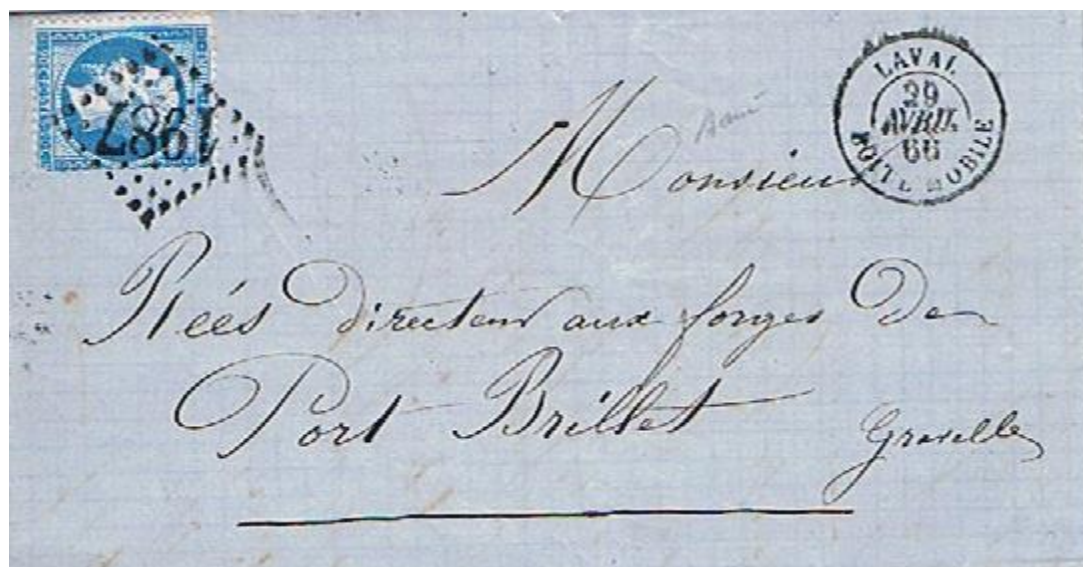 1987
LAVAL
29
AVRIL
66
BOITE MOBILE
Monsieur
Pléés directeur aux forges De
Port Brillet
Gravelle